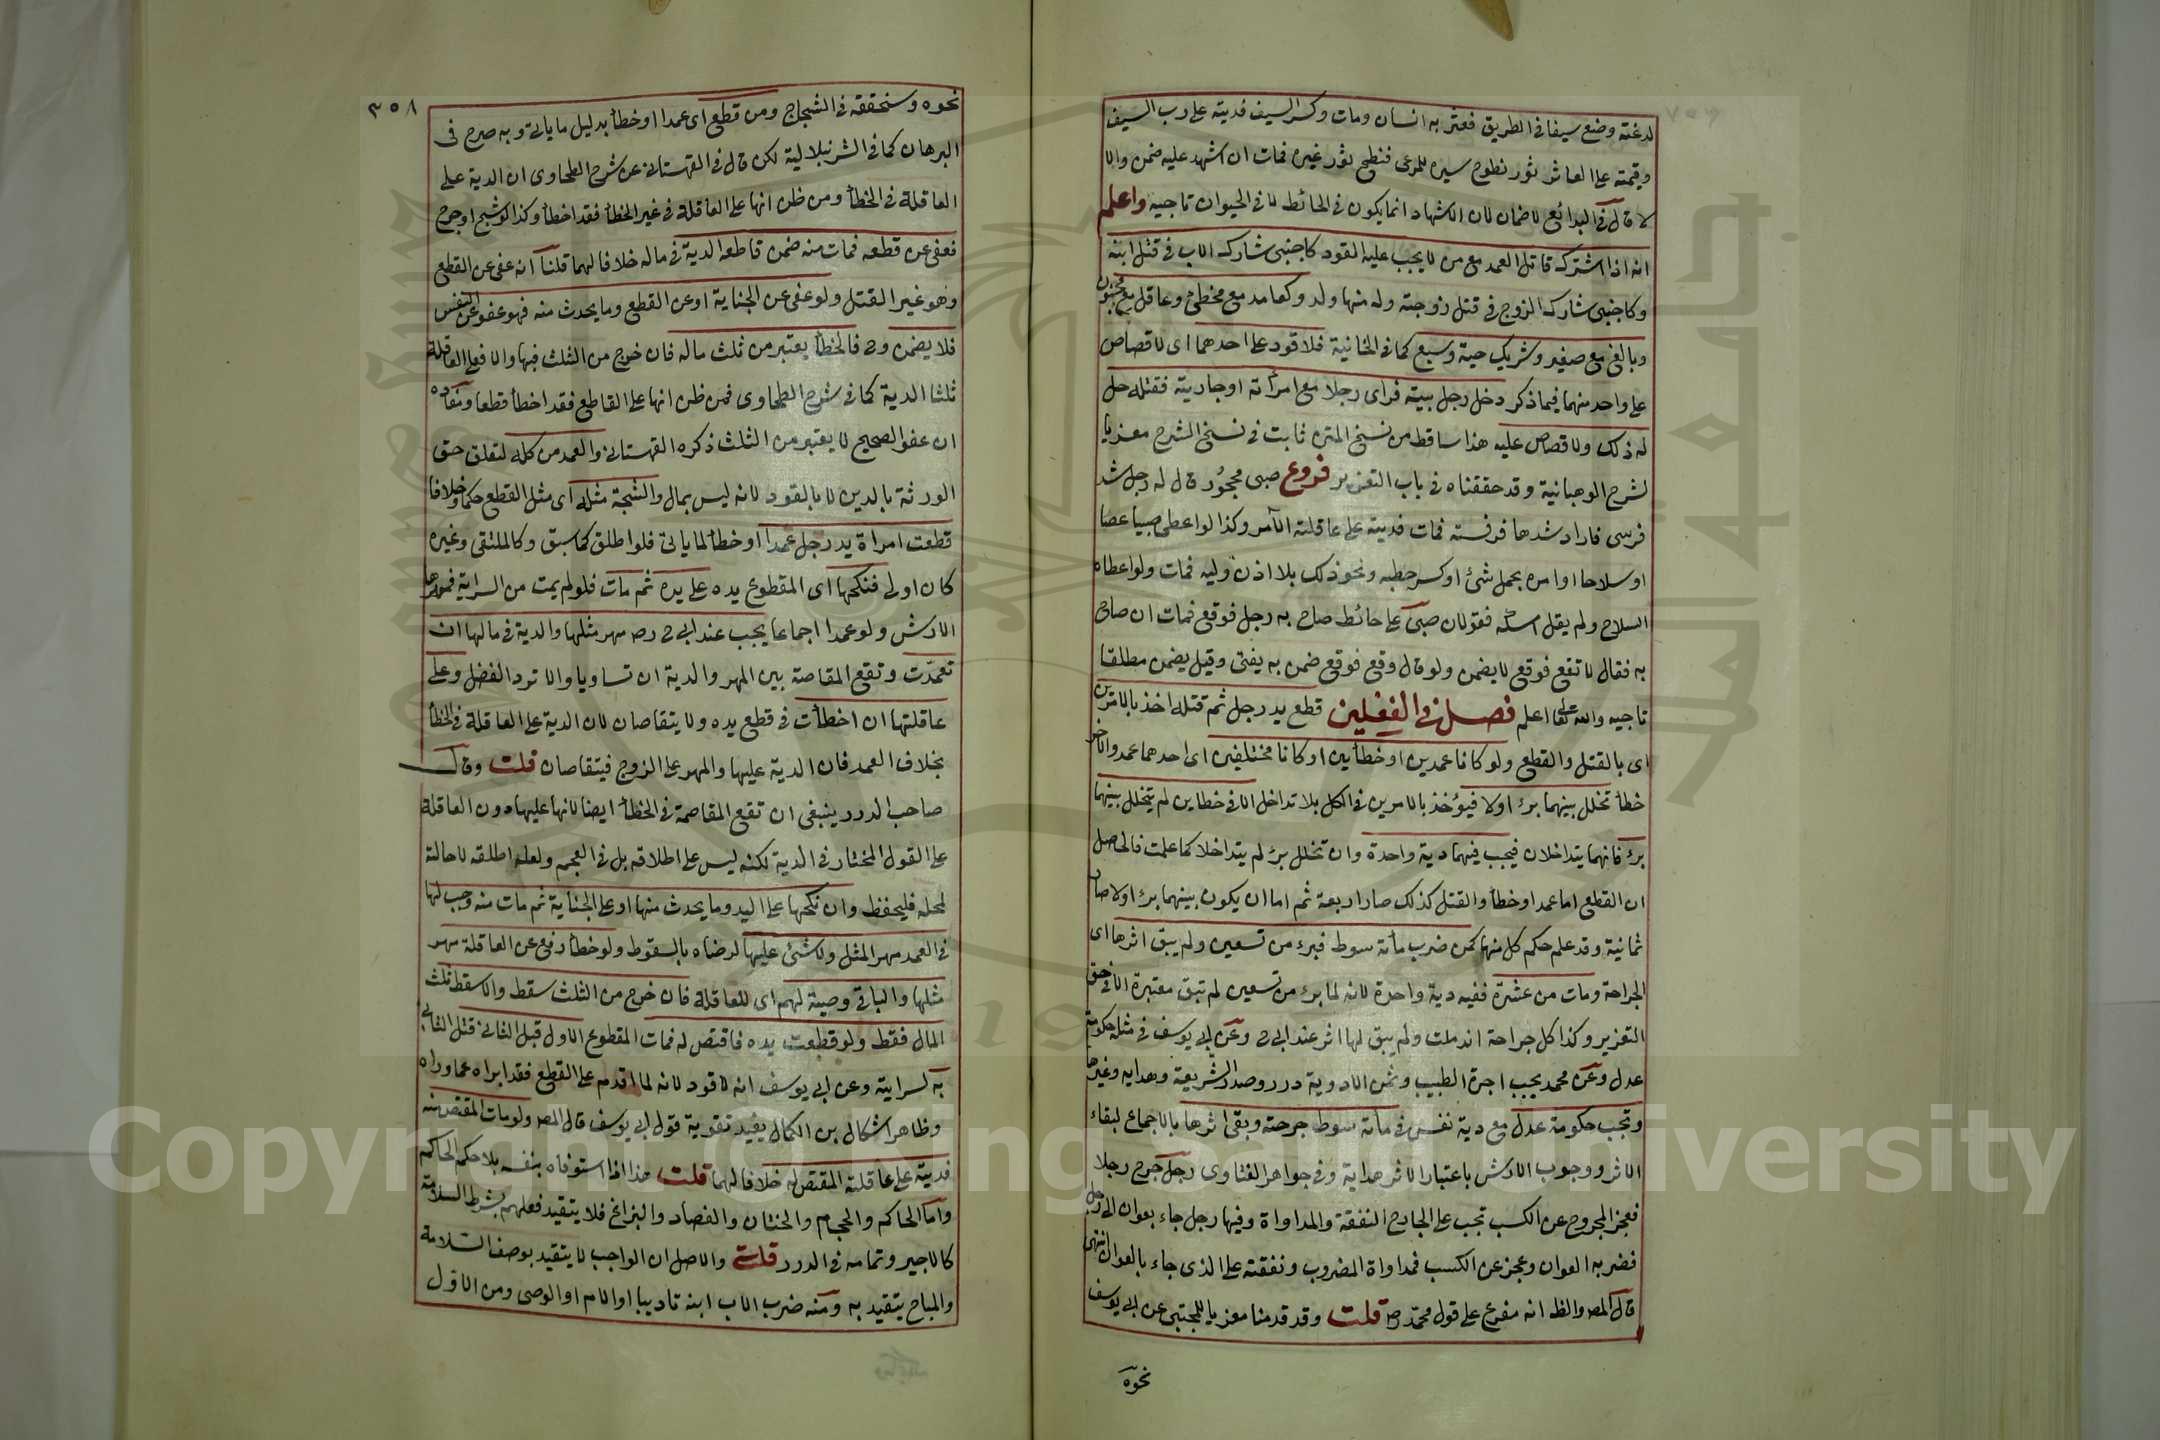 لدغته وضع سيفا في الطريق فعثر به انسان ومات وكسر السيف فديته على رب السيف
وقيمته على العاثر ثور نطوح سيره للمرعى فنطح ثور غيره فمات ان اشهد عليه ضمن والا
لا قال في البدائع لا ضمان لان الاشهاد انما يكون في الحائط لا في الحيوان تاجيه واعلم
انه اذا اشترك قاتل العمد مع من لا يجب عليه القود كاجنبي شارك الاب في قتل ابنه
وكاجنبي شارك الزوج في قتل زوجته وله منها ولد وكعامد مع مخطئ وعاقل مع مجنون
وبالغ مع صغير وشريك حية وسبع كما في الخانية فلا قود على احدهما اى لا قصاص
على واحد منهما فيما ذكر دخل رجل بيته فراى رجلا مع امرأته او جاريته فقتله حل
له ذلك ولا قصاص عليه هذا ساقط من نسخ المتن ثابت في نسخ الشرح معزيا
لشرح الوهبانية وقد حققناه في باب التعزير فروع صبى محجور قال له رجل شد
فرسى فاراد شدها فرفسته فمات فديته على عاقلة الآمر وكذا لو اعطى صبيا عصا
او سلاحا او امره بحمل شئ او كسر حطب ونحو ذلك بلا اذن وليه فمات ولو اعطاه
السلاح ولم يقل امسكه فقولان صبى على حائط صاح به رجل فوقع فمات ان صاح
به فقال لا تقع فوقع لا يضمن ولو قال وقع فوقع ضمن به يفتى وقيل يضمن مطلقا
تاجيه والله تعالى اعلم فصل في الفعلين قطع يد رجل ثم قتله اخذ بالامرين
اى بالقتل والقطع ولو كانا عمدين او خطأين او كانا مختلفين اى احدهما عمد والآخر
خطأ تخلل بينهما برء اولا فيؤخذ بالامرين في الكل بلا تداخل الا في خطاين لم يتخلل بينهما
برء فانهما يتداخلان فيجب فيهما دية واحدة وان تخلل برء لم يتداخلا كما علمت فالحاصل
ان القطع اما عمد او خطأ والقتل كذلك صار اربعة ثم اما ان يكون بينهما برء اولا صار
ثمانية وقد علم حكم كل منها كمن ضرب مأئة سوط فبرء من تسعين ولم يبق اثرها اى
الجراحة ومات من عشرة ففيه دية واحدة لانه لما برء من تسعين لم تبق معتبرة الا في حق
التعزير وكذا كل جراحة اندملت ولم يبق لها اثر عند ابى ح وعن ابى يوسف في مثله حكومة
عدل وعن محمد يجب اجرة الطبيب وثمن الادوية درر وصدر الشريعة وهدايه وغيرها
وتجب حكومة عدل مع دية نفس في مأئة سوط جرحته وبقى اثرها بالاجماع لبقاء
الاثر ووجوب الارش باعتبار الاثر هداية وفي جواهر الفتاوى رجل جرح رجلا
فعجز المجروح عن الكسب تجب على الجارح النفقة والمداواة وفيها رجل جاء بعوان الى رجل
فضربه العوان وعجز عن الكسب فمداواة المضروب ونفقته على الذى جاء بالعوان انتهى
قال المص والظ انه مفرع على قول محمد قلت وقد قدمنا معزيا للمجتبى عن ابى يوسف
نحوه
٣٥٨
نحوه وسنحققه في الشجاج ومن قطع اى عمدا او خطأ بدليل ما ياتى وبه صرح في
البرهان كما في الشرنبلالية لكن قال في القهستانى عن شرح الطحاوى ان الدية على
العاقلة في الخطأ ومن ظن انها على العاقلة في غير الخطأ فقد اخطأ وكذا لو شج او جرح
فعفى عن قطعه فمات منه ضمن قاطعه الدية في ماله خلافا لهما قلنا انه عفى عن القطع
وهو غير القتل ولو عفى عن الجناية او عن القطع وما يحدث منه فهو عفو عن النفس
فلا يضمن وح فالخطأ يعتبر من ثلث ماله فان خرج من الثلث فبها والا فعلى العاقلة
ثلثا الدية كما في شرح الطحاوى فمن ظن انها على القاطع فقد اخطأ قطعا ومفاده
ان عفو الصحيح لا يعتبر من الثلث ذكره القهستانى والعمد من كله لتعلق حق
الورثة بالدين لا بالقود لانه ليس بمال والشجة مثله اى مثل القطع حكما وخلافا
قطعت امراة يد رجل عمدا او خطأ لما ياتى فلو اطلق كما سبق وكالملتقى وغيره
كان اولى فنكحها اى المقطوع يده على يده ثم مات فلو لم يمت من السراية فمهرها
الارش ولو عمدا اجماعا يجب عند ابى ح ره مهر مثلها والدية في مالها ان
تعمدت وتقع المقاصة بين المهر والدية ان تساويا والا ترد الفضل وعلى
عاقلتها ان اخطأت في قطع يده ولا يتقاصان لان الدية على العاقلة في الخطأ
بخلاف العمد فان الدية عليها والمهر على الزوج فيتقاصان قلت وقال
صاحب الدرر ينبغى ان تقع المقاصة في الخطأ ايضا لانها عليها دون العاقلة
على القول المختار في الدية لكنه ليس على اطلاقه بل في العجم ولعله اطلقه لاحالة
لمحله فليحفظ وان نكحها على اليد وما يحدث منها او على الجناية ثم مات منه وجب لها
في العمد مهر المثل ولا شئ عليها لرضاه بالسقوط ولو خطأ رفع عن العاقلة مهر
مثلها والباقى وصية لهم اى للعاقلة فان خرج من الثلث سقط والا سقط ثلث
المال فقط ولو قطعت يده فاقتص له فمات المقطوع الاول قبل الثانى قتل الثانى
به لسرايته وعن ابى يوسف انه لا قود لانه لما اقدم على القطع فقد ابراه عما وراه
وظاهر اشكال بن الكمال يفيد تقوية قول ابى يوسف قال المص ولو مات المقتص منه
فديته على عاقلة المقتص له خلافا لهما قلت هذا اذا استوفاه بنفسه بلا حكم الحاكم
واما الحاكم والحجام والختان والفصاد والبزاغ فلا يتقيد فعلهم بشرط السلامة
كالاجير وتمامه في الدرر قلت والاصل ان الواجب لا يتقيد بوصف السلامة
والمباح يتقيد به ومنه ضرب الاب ابنه تاديبا او الام او الوصى ومن الاول
Copyright © King Saud University